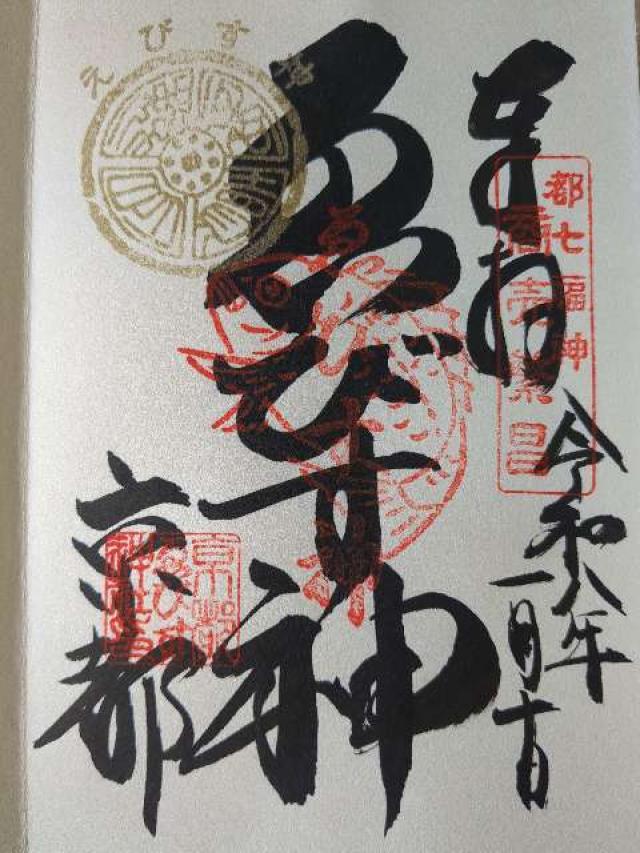 奉拝
都七福神
商売繁昌
令和八年
一月十日
えびす
ゑびす神
京都
京都
ゑびす
神社